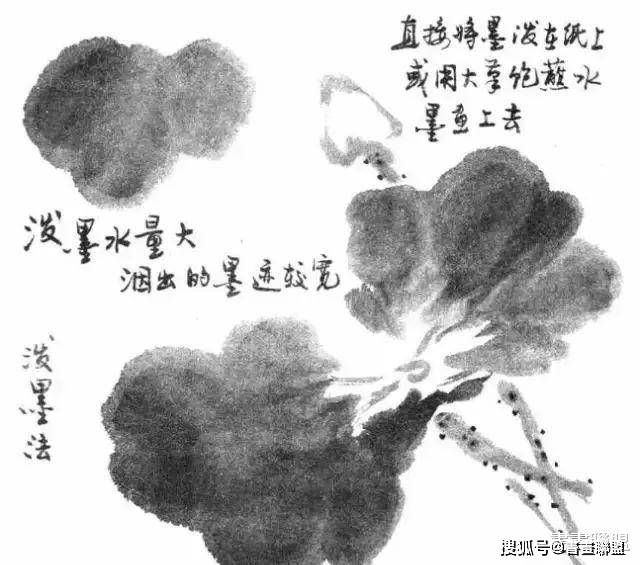 直接将墨泼在纸上
或用大笔饱蘸水
墨画上去
泼墨水量大
洇出的墨迹较宽
泼墨法
搜狐号@書畫聯盟